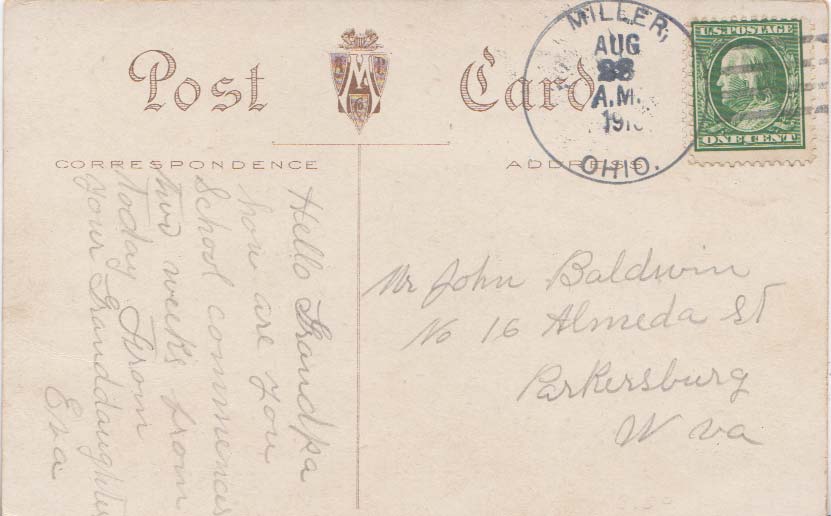 Post Card
CORRESPONDENCE
ADDRESS
MILLER,
AUG
A.M.
191
OHIO.
U.S. POSTAGE
ONE CENT
Hello Grandpa
how are you
School commences
two weeks from
today From
your Granddaughter
Eva
Mr John Baldwin
No 16 Almeda St
Parkersburg
W va